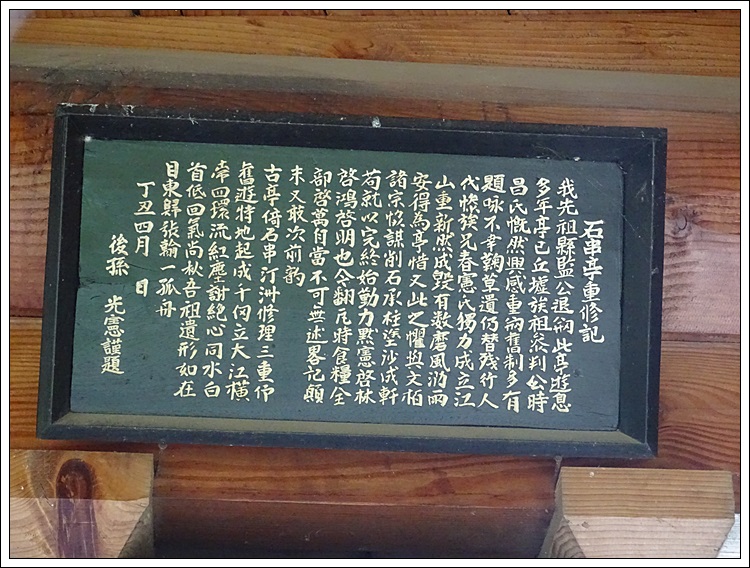 石串亭重修記
我先祖縣監公退兩此亭遊息
多年亭已丘墟族祖參判公時
昌氏慨然興感重兩舊制多有
題咏不幸鞠草遺仍替殘竹人
代慘族兄春憲氏獨力成立江
山重新然成毀有數磨風洀雨
安得為亭惜又此之懼與文柏
諸宗協謀削石承柱塗沙成軒
苟就以完終始動力點憲啓林
啓鴻啓明也令翻瓦時食糧全
部啓萬自當不可無述畧記顛
末又敢次前韵
古亭倚石串汀洲修理三重伂
舊遊特地起成千囘立大江橫
帶四環流紅塵謝絶心同水白
首低回氣尚秋吾祖遺形如在
目東歸張翰一孤舟
丁丑四月 日
後孫 光憲謹題